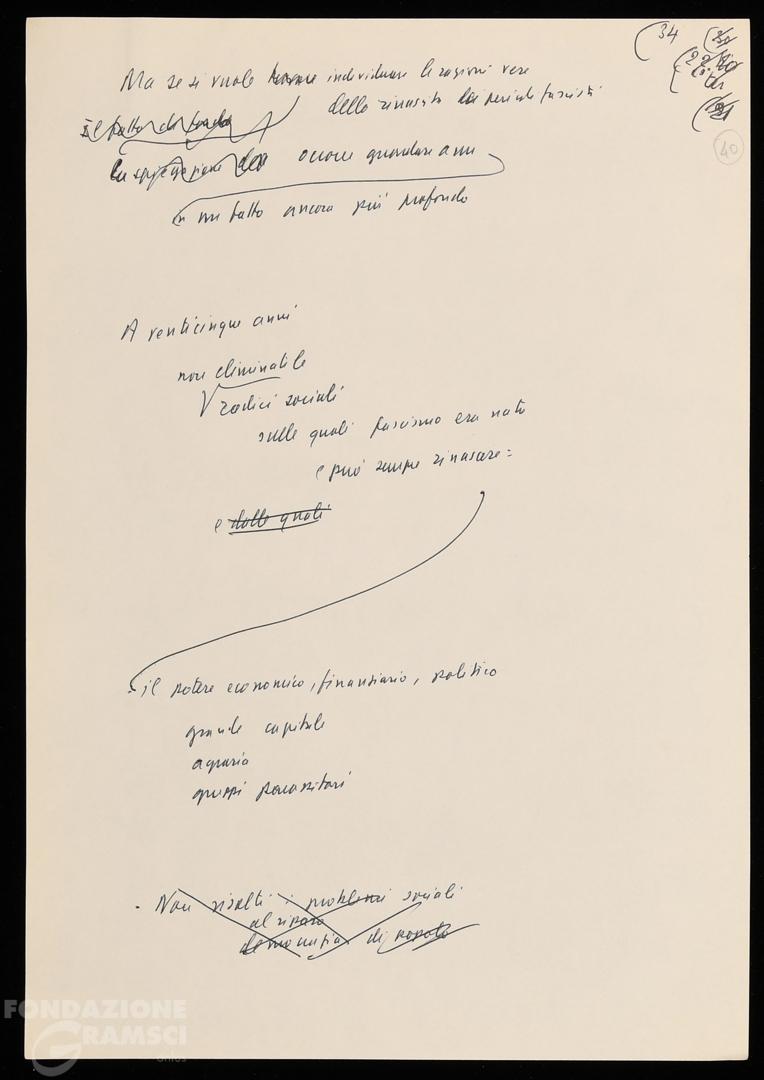 (34
40
Ma se si vuole individuare le ragioni vere
della rinascita dei pericoli fascisti
Il fatto di fondo
la spiegazione del occorre guardare a un
in un fatto ancora più profondo
A venticinque anni
non eliminabile
radici sociali
sulle quali fascismo era nato
e può sempre rinascere =
e dalle quali
- il potere economico, finanziario, politico
grande capitale
agraria
gruppi parassitari
- Non risolti i problemi sociali
al riparo
democrazia di popolo
FONDAZIONE
GRAMSCI
onlus